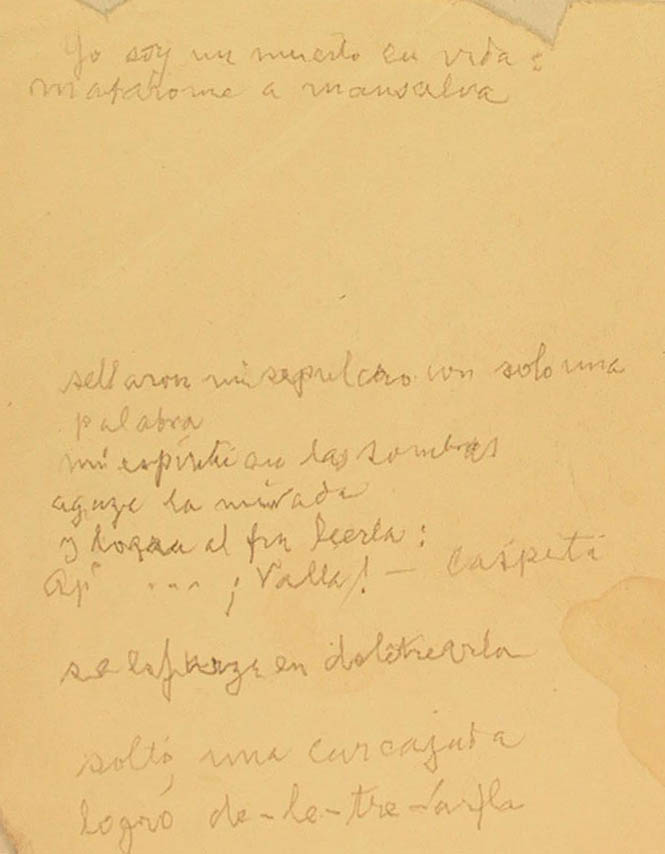 Yo soy un muerto en vida:
mataronme a mansalva
sellaron mi sepulcro con solo una
palabra
mi espíritu en las sombras
aguza la mirada
y logra al fin leerla:
... ¡Valla! — Caspita
se esfuerza en deletrearla
soltó una carcajada
logró de-le-tre-ar-la